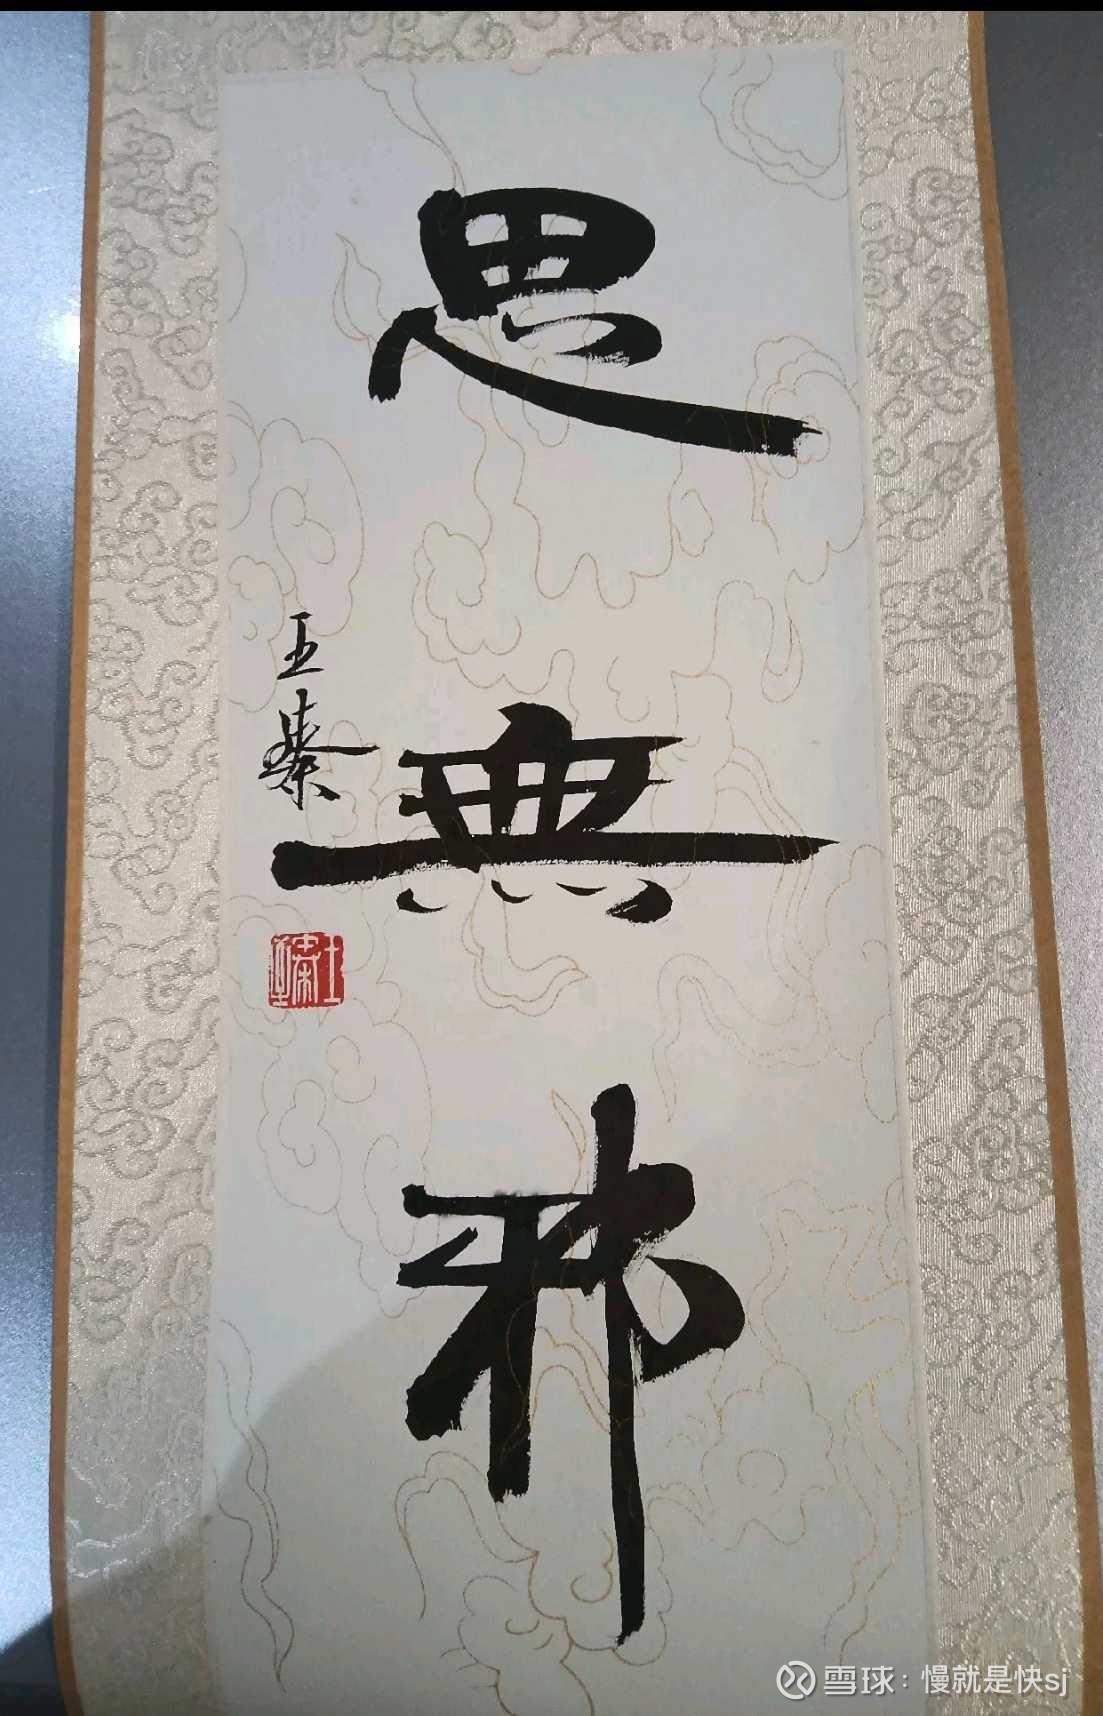 思無邪
王蓁
雪球：慢就是快sj